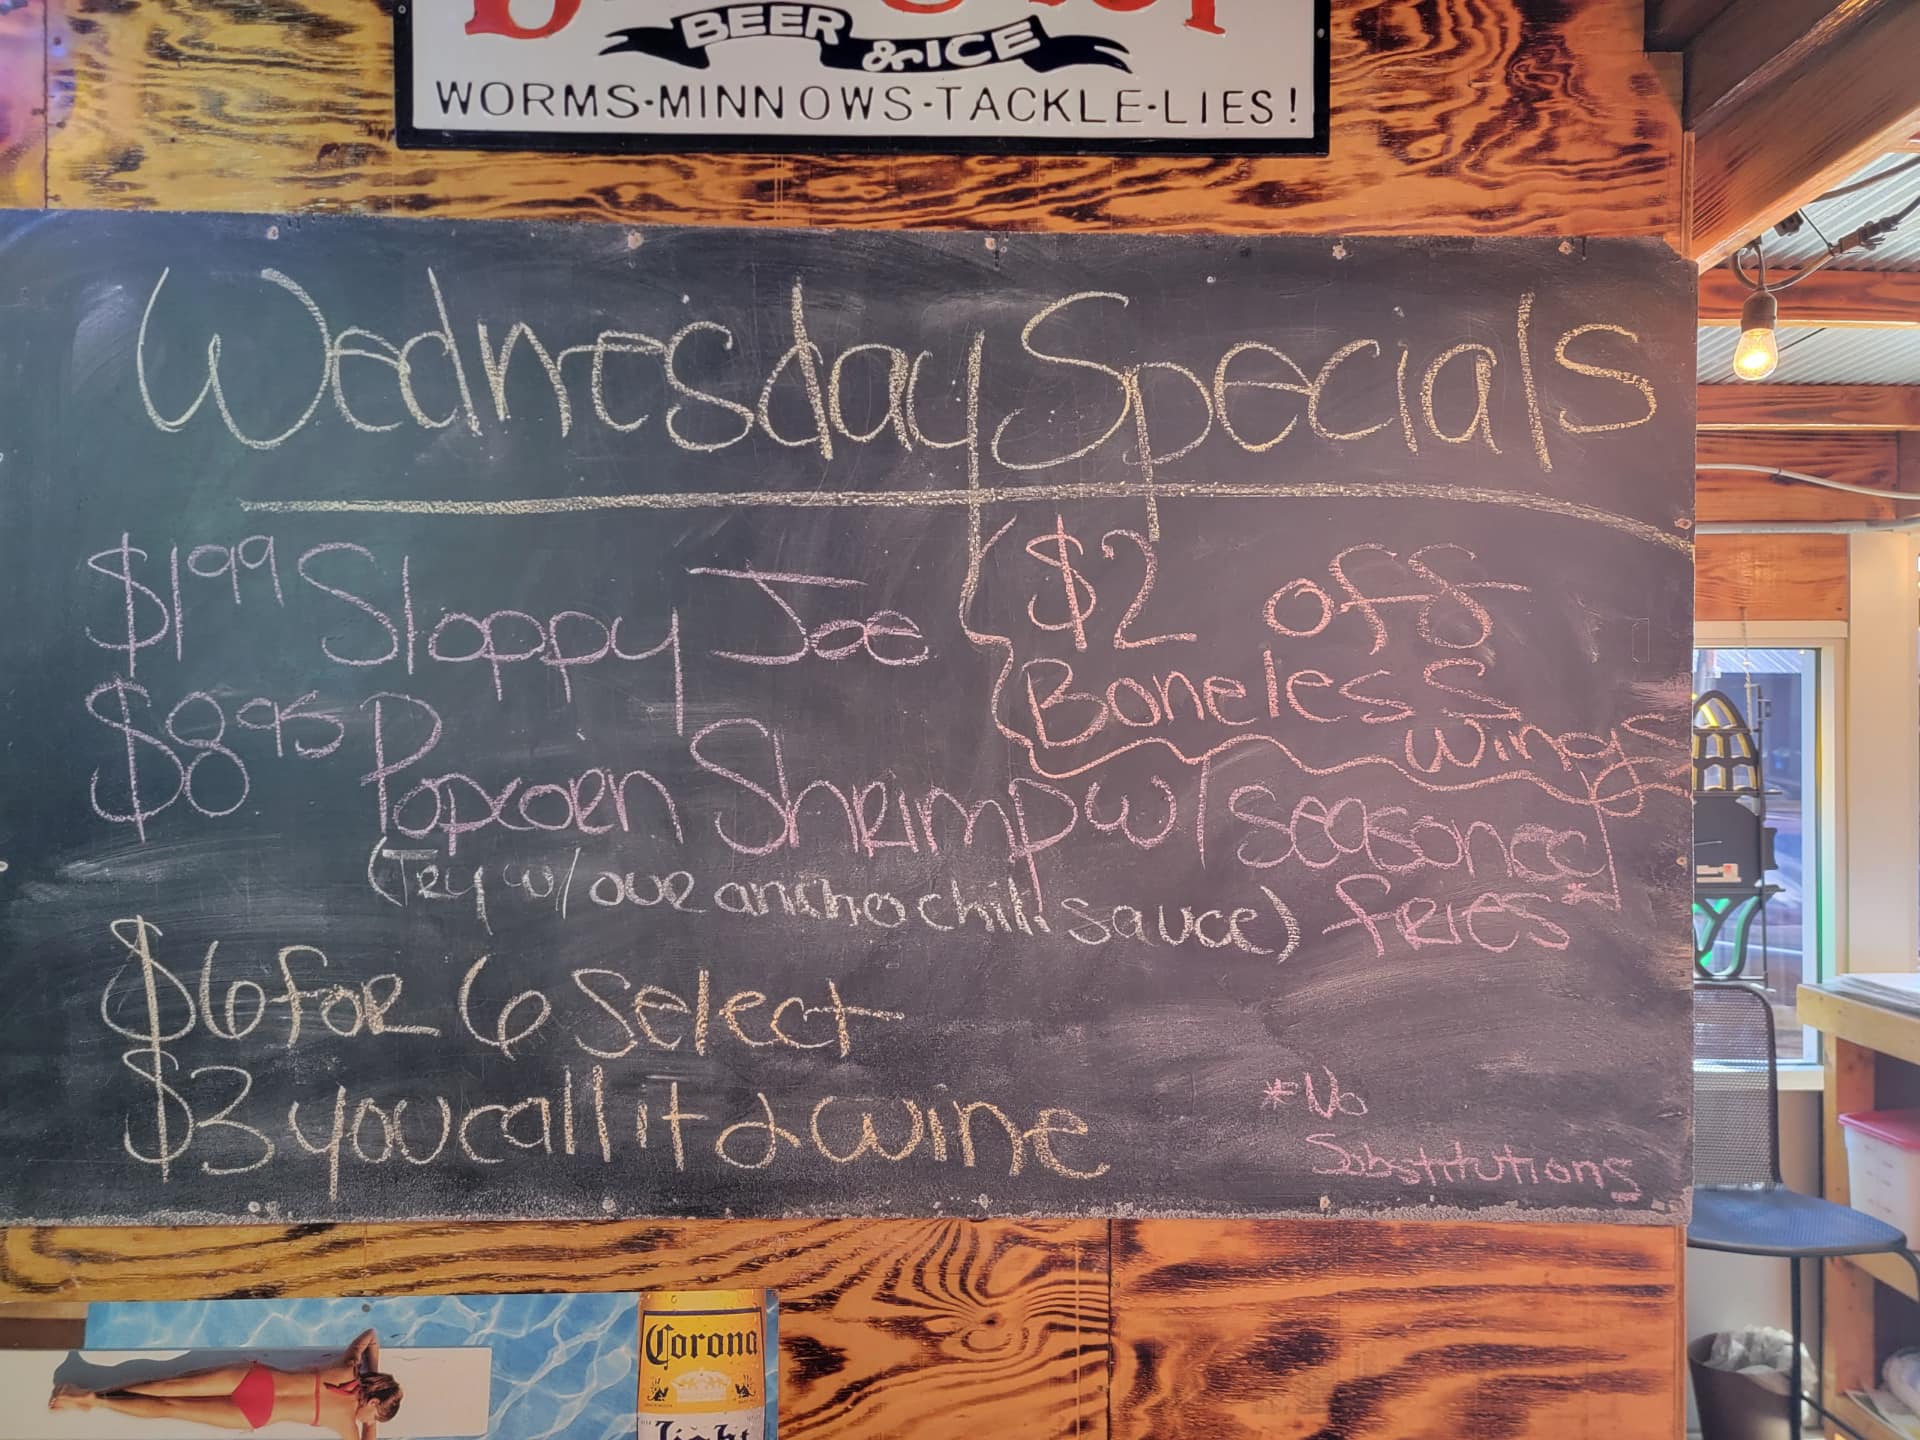 BEER & ICE
WORMS·MINNOWS·TACKLE·LIES!
Wednesday Specials
$1.99 Sloppy Joe
$2 off
Boneless
Wings
$8.95 Popcorn Shrimp w/ seasoned
(Try w/ our ancho chili sauce) fries*
$6 for 6 Select
$3 you call it & wine
*No
Substitutions
Corona
Light